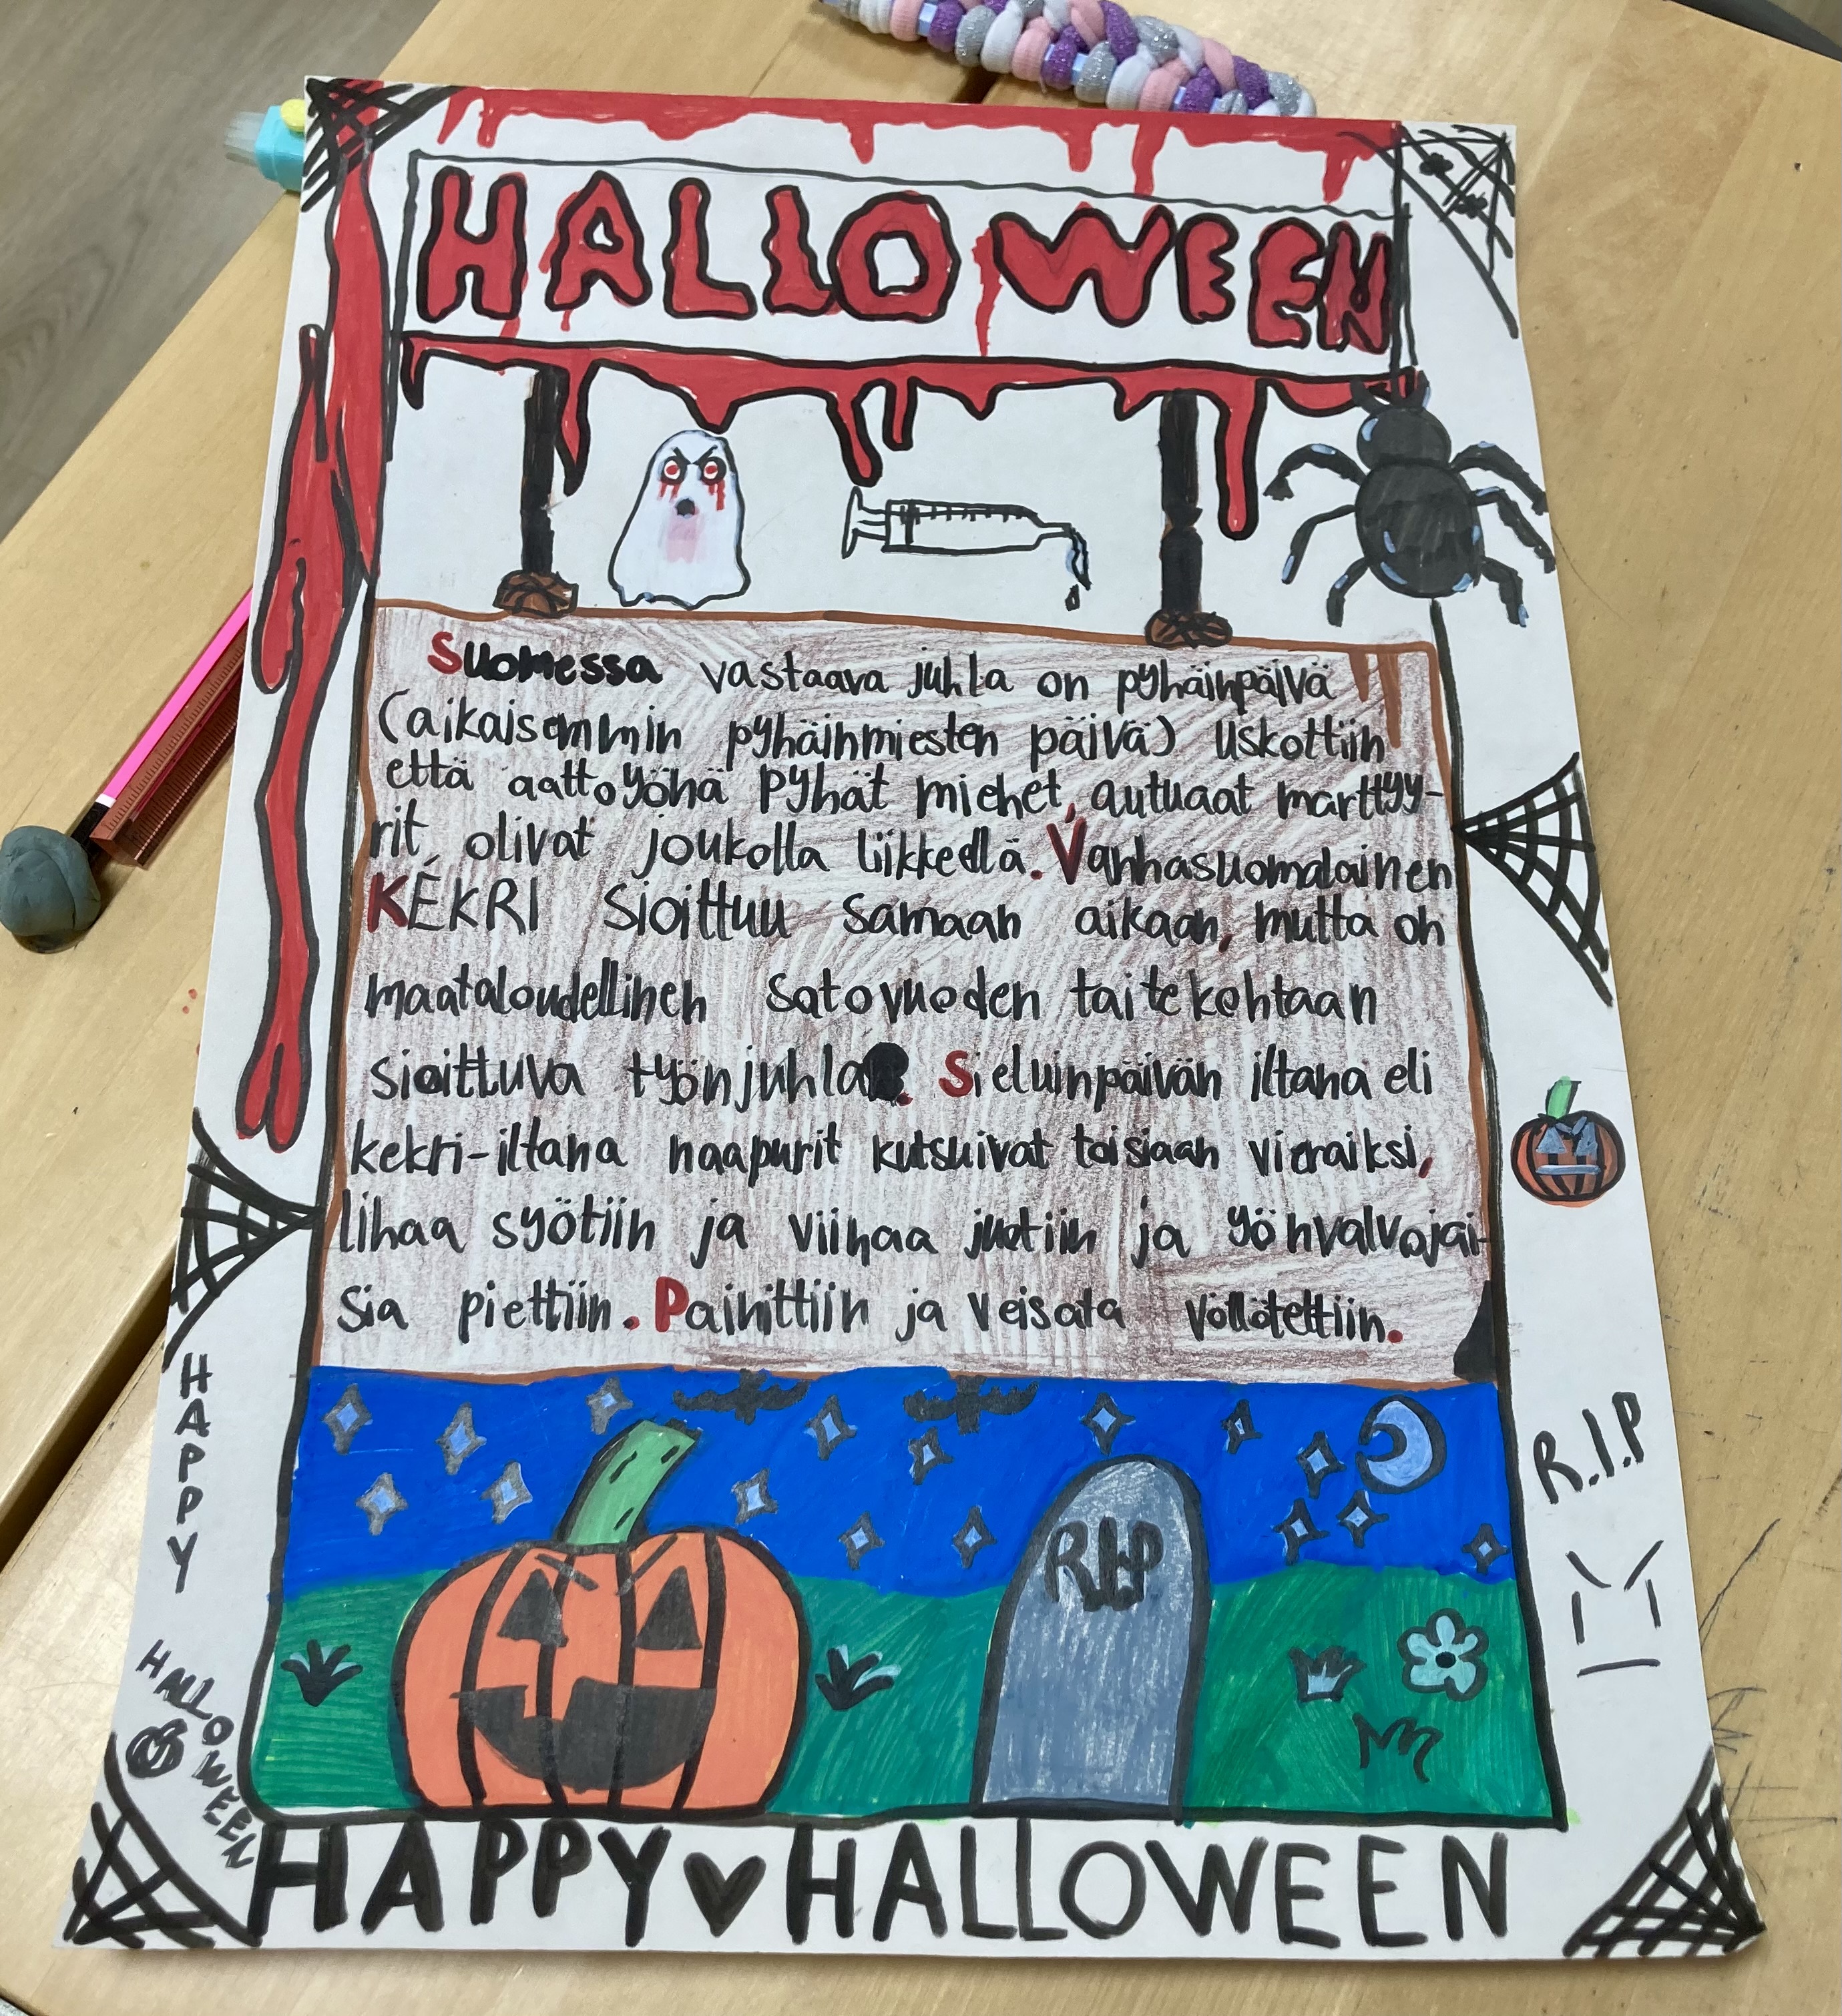 HALLOWEEN
Suomessa vastaava juhla on pyhäinpäivä
(aikaisemmin pyhäinmiesten päivä) Uskottiin
että aattoyönä pyhät miehet, autuaat marttyy-
rit, olivat joukolla liikkeellä. Vanhasuomalainen
KEKRI Sioittuu samaan aikaan, mutta on
maataloudellinen satovuoden taitekohtaan
sioittuva työnjuhla. Sieluinpäivän iltana eli
kekri-iltana naapurit kutsuivat toisiaan vieraiksi,
lihaa syötiin ja viinaa juotiin ja yönvalvojai-
sia piettiin. Painittiin ja veisata völlötettiin.
R.I.P
R.I.P
HAPPY
HALLOWEEN
HAPPY ♥ HALLOWEEN